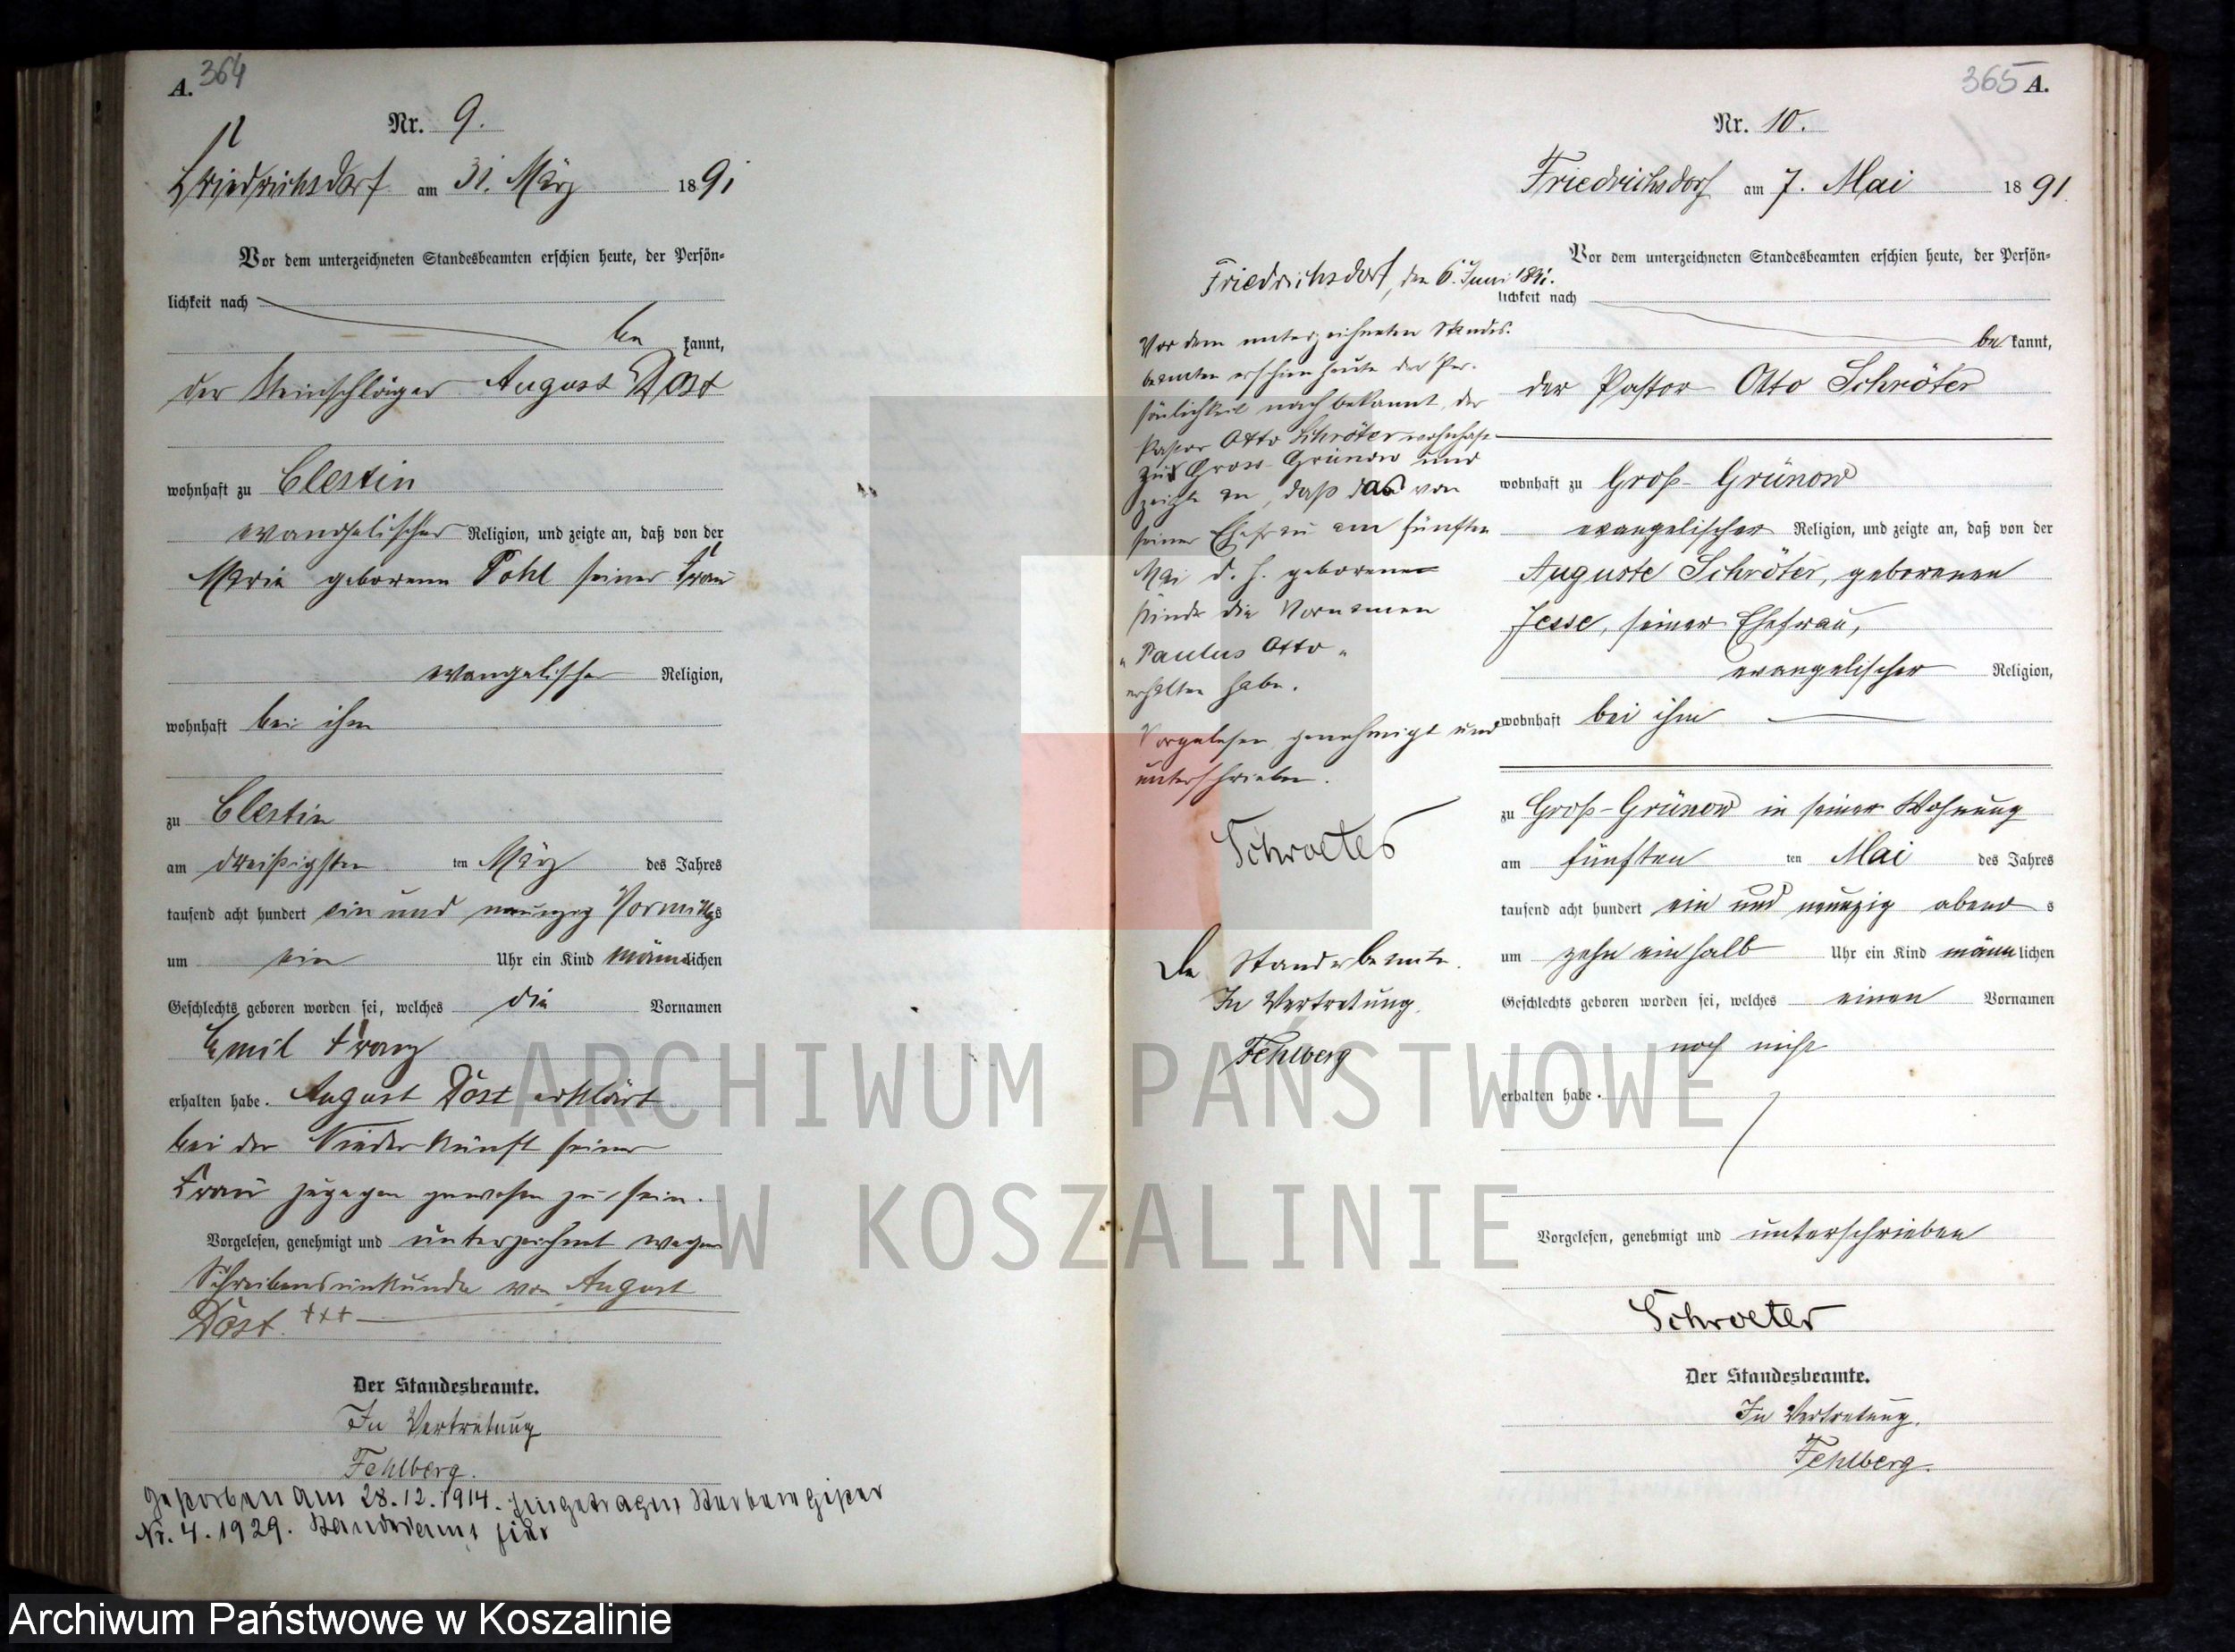 364
A.
Nr. 9.
Friedrichsdorf am 31. März 1891
Vor dem unterzeichneten Standesbeamten erschien heute, der Persön-
lichkeit nach
be kannt,
der Steinschläger August Dost
wohnhaft zu Clestin
evangelischer Religion, und zeigte an, daß von der
Marie geborenen Pohl seiner Frau
evangelischer Religion,
wohnhaft bei ihm
zu Clestin
am dreißigsten ten März des Jahres
tausend acht hundert ein und neunzig Vormittgs
um ein Uhr ein Kind männlichen
Geschlechts geboren worden sei, welches die Vornamen
Emil Franz
erhalten habe. August Dost erklärt
bei der Niederkunft seiner
Frau zugegen gewesen zu sein.
Vorgelesen, genehmigt und unterzeichnet wegen
Schreibensunkunde von August
Dost. +++
Der Standesbeamte.
In Vertretung
Fehlberg.
gestorben am 28.12.1914. Eingetragen Sterberegister
Nr. 4. 1929. Standesamt hier
365 A.
Nr. 10.
Friedrichsdorf am 7. Mai 1891.
Vor dem unterzeichneten Standesbeamten erschien heute, der Persön-
lichkeit nach
be kannt,
der Pastor Otto Schröter
wohnhaft zu Groß-Grünow
evangelischer Religion, und zeigte an, daß von der
Auguste Schröter, geborenen
Jesse, seiner Ehefrau,
evangelischer Religion,
wohnhaft bei ihm
zu Groß-Grünow in seiner Wohnung
am fünften ten Mai des Jahres
tausend acht hundert ein und neunzig abend s
um zehn einhalb Uhr ein Kind männlichen
Geschlechts geboren worden sei, welches einen Vornamen
noch nicht
erhalten habe.
Vorgelesen, genehmigt und unterschrieben
Schroeter
Der Standesbeamte.
In Vertretung.
Fehlberg.
Friedrichsdorf, den 6. Juni 1891.
Vor dem unterzeichneten Standes-
beamten erschien heute der Per-
sönlichkeit nach bekannt, der
Pastor Otto Schröter wohnhaft
zu Gross-Grünow und
zeigte an, daß das von
seiner Ehefrau am fünften
Mai d. J. geborene
Kinde die Vornamen
"Paulus Otto"
erhalten habe.
Vorgelesen, genehmigt und
unterschrieben.
Schroeter
Der Standesbeamte.
In Vertretung.
Fehlberg
ARCHIWUM PAŃSTWOWE
W KOSZALINIE
Archiwum Państwowe w Koszalinie